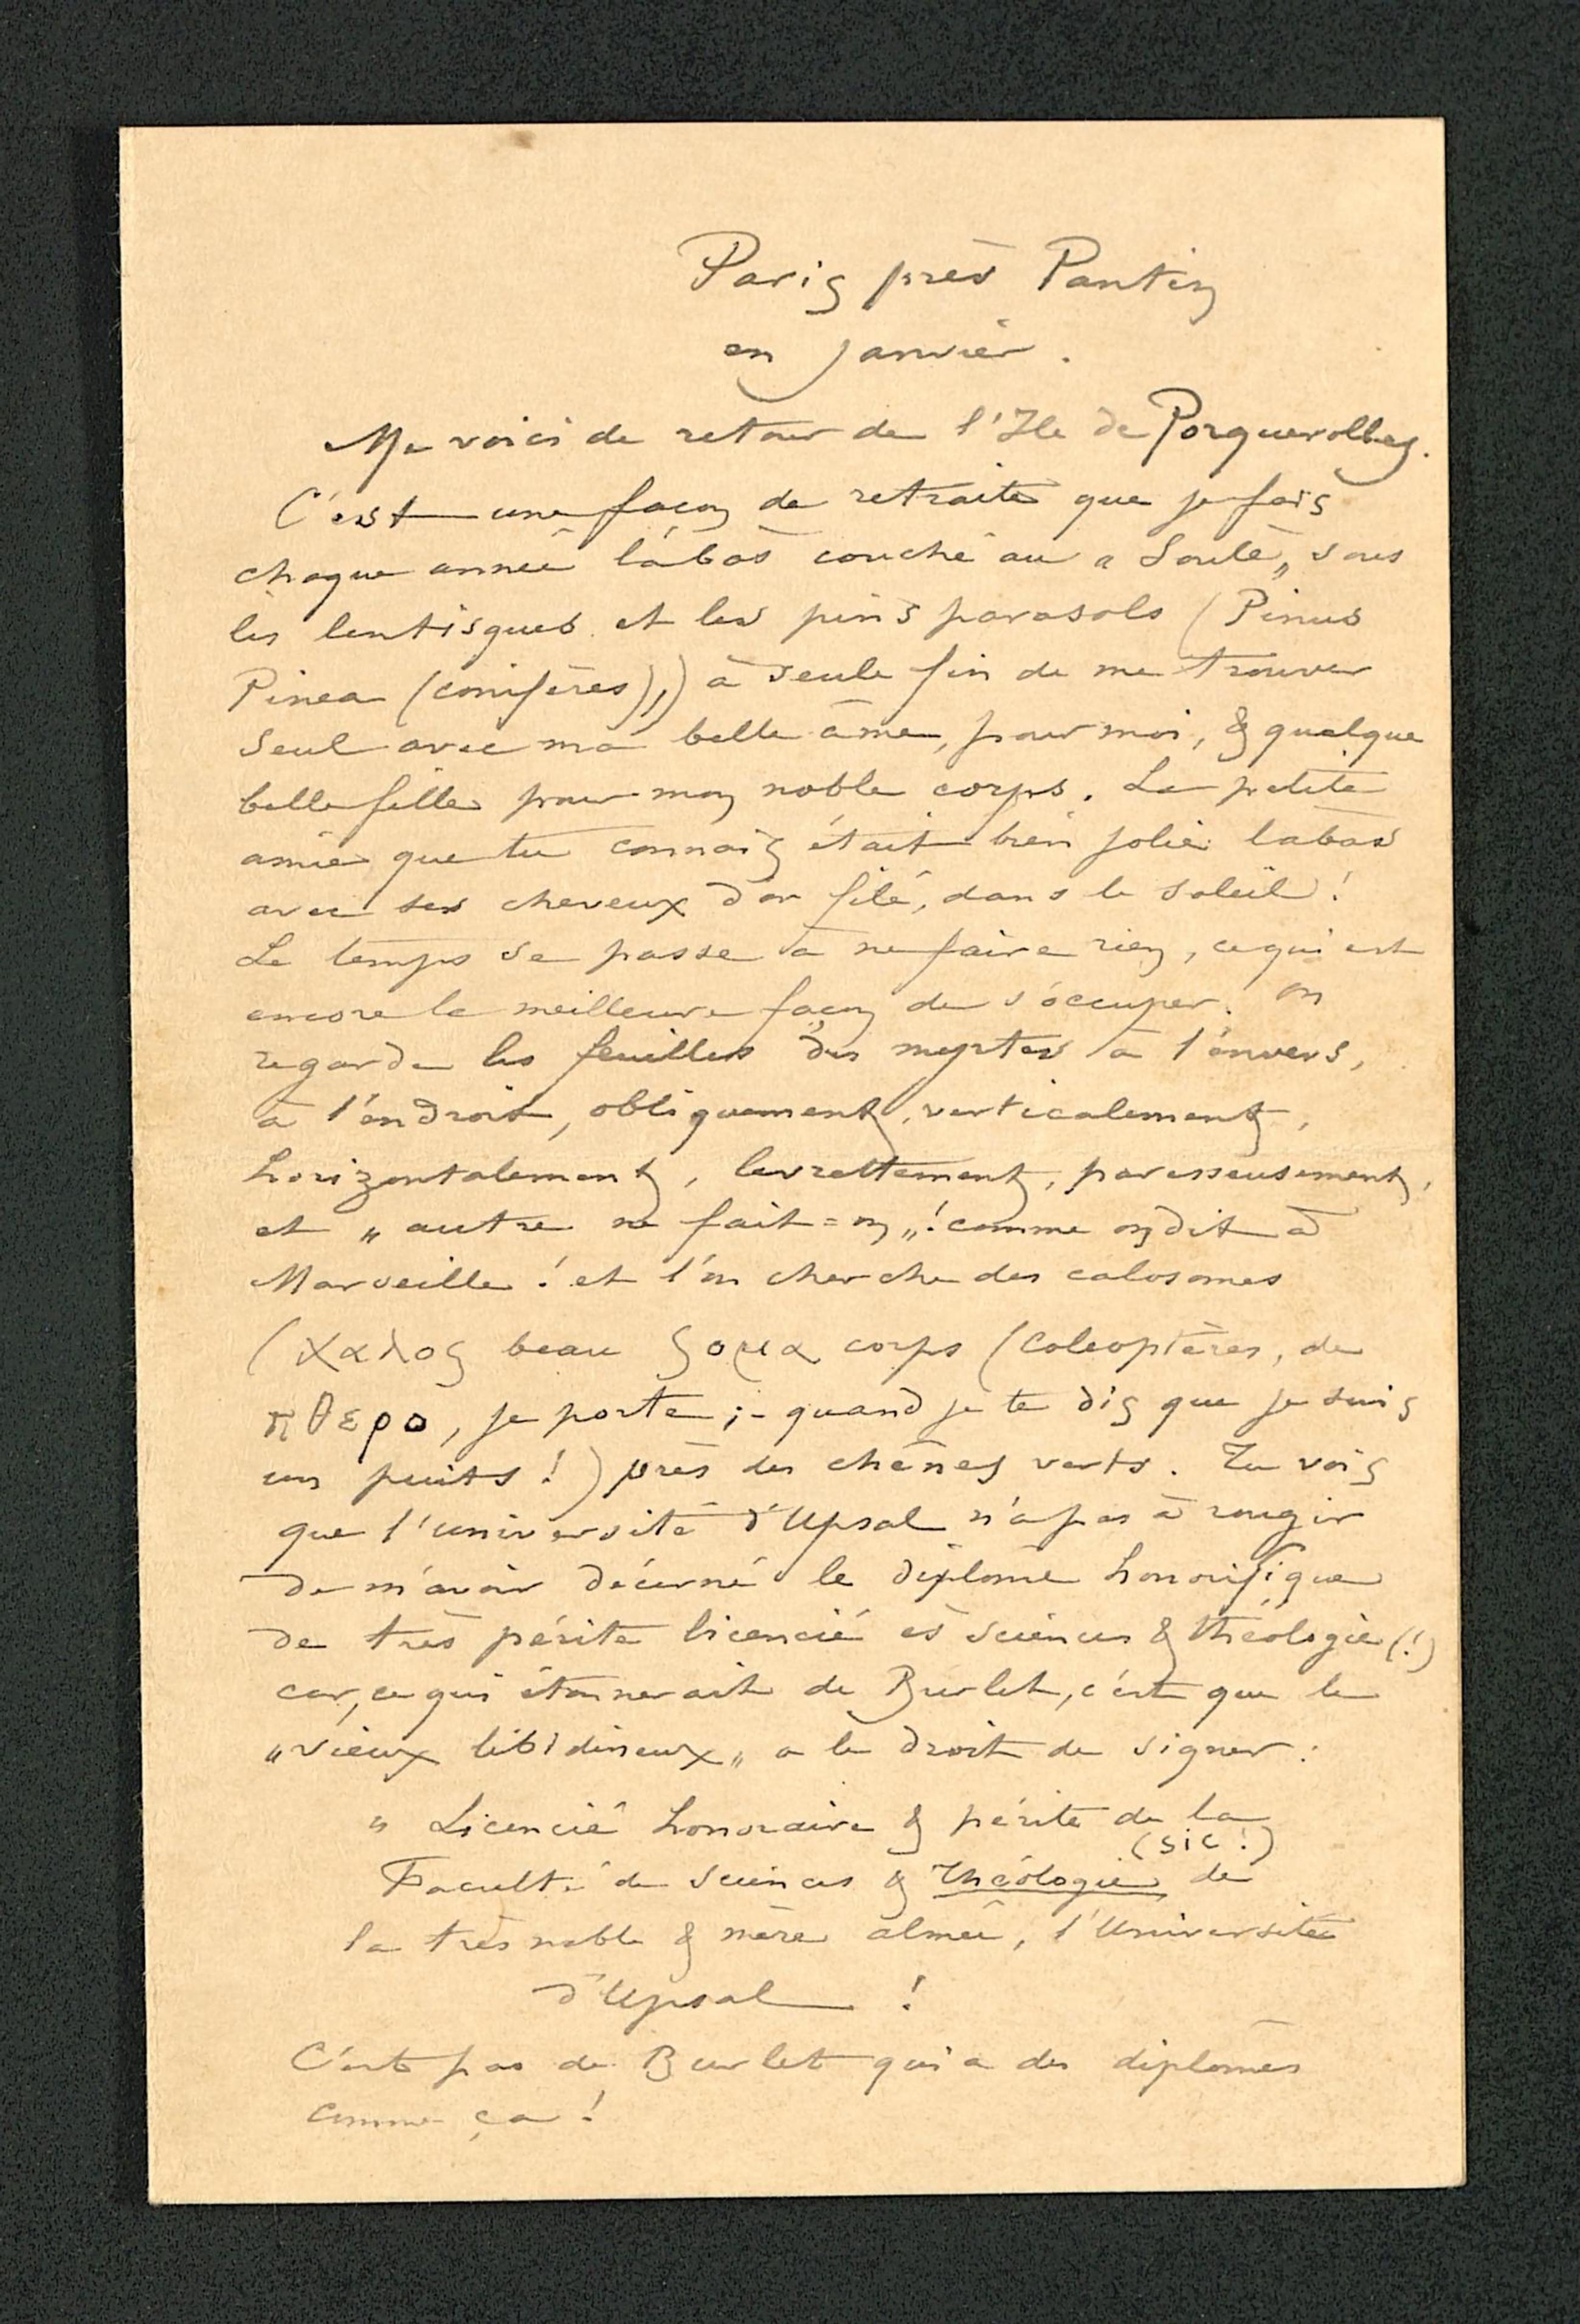 Paris près Pantin
en Janvier.
Me voici de retour de l'Ile de Porquerolles.
C'est une façon de retraite que je fais
chaque année làbas couché au « Soulè„ sous
les lentisques et les pins parasols (Pinus
Pinea (conifères),) à seule fin de me trouver
seul avec ma belle âme, pour moi, & quelque
belle fille pour mon noble corps. La petite
amie que tu connais était bien jolie labas
avec ses cheveux d'or filé, dans le soleil!
Le temps se passe à ne faire rien, ce qui est
encore la meilleure façon de s'occuper. On
regarde les feuilles des myrtes à l'envers,
à l'endroit, obliquement, verticalement,
horizontalement, levrettement, paresseusement,
et „ autre ne fait=on „! comme on dit à
Marseille! et l'on cherche des calosomes
(χαλος beau ςομα corps (Coleoptères, de
πθερο, je porte;- quand je te dis que je suis
un puits!) près des chênes verts. Tu vois
que l'université d'Upsal n'a pas à rougir
de m'avoir décerné le diplome honorifique
de très périte licencié ès sciences & théologie (!)
car, ce qui étonnerait de Burlet, c'est que le
„vieux libidineux„ a le droit de signer:
„ Licencié honoraire & périte de la
(sic!)
Faculté de Sciences & Théologie de
la très noble & mère almée, l'Université
d'Upsal !
C'est pas de Burlet qui a des diplomes
comme ça!